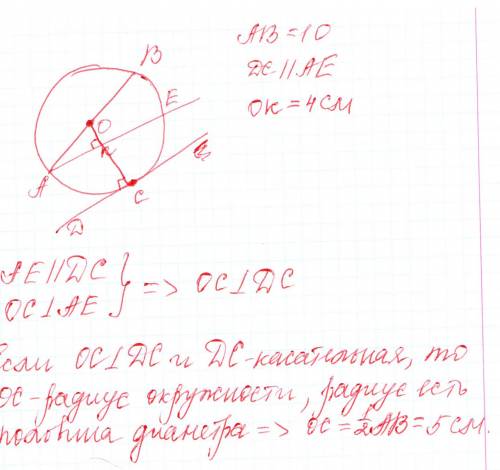 AB = 10
DC || AE
OK = 4 см
B
E
O
K
A
C
D
AE || DC
OC ⊥ AE } => OC ⊥ DC
если OC ⊥ DC и DC - касательная, то
OC - радиус окружности, радиус есть
половина диаметра => OC = 1/2 AB = 5 см.